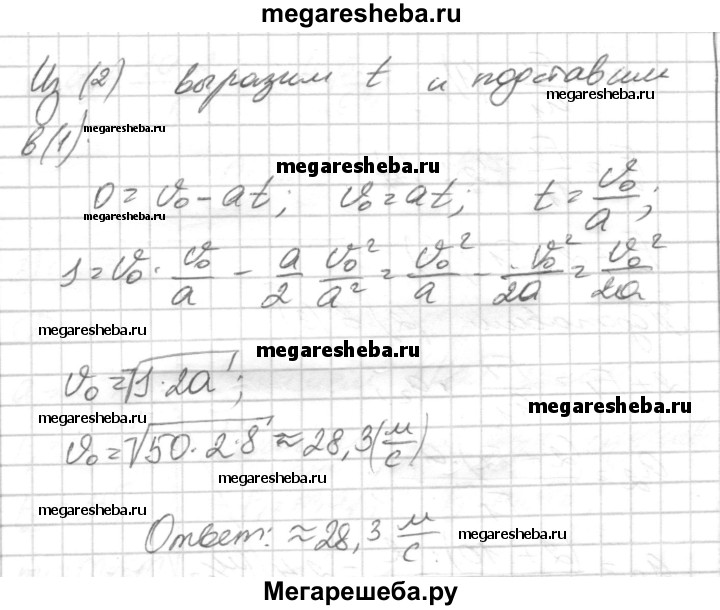 megaresheba.ru
Из (2) выразим t и подставим
megaresheba.ru
в (1):
megaresheba.ru
megaresheba.ru
0 = v₀ - at; v₀ = at; t = v₀/a;
megaresheba.ru
s = v₀ · v₀/a - a/2 v₀²/a² = v₀²/a - v₀²/2a = v₀²/2a
megaresheba.ru
megaresheba.ru
v₀ = √s·2a;
megaresheba.ru
megaresheba.ru
v₀ = √50·2·8 ≈ 28,3 (м/с)
megaresheba.ru
megaresheba.ru
Ответ: ≈ 28,3 м/с
megaresheba.ru
Мегарешеба.ру